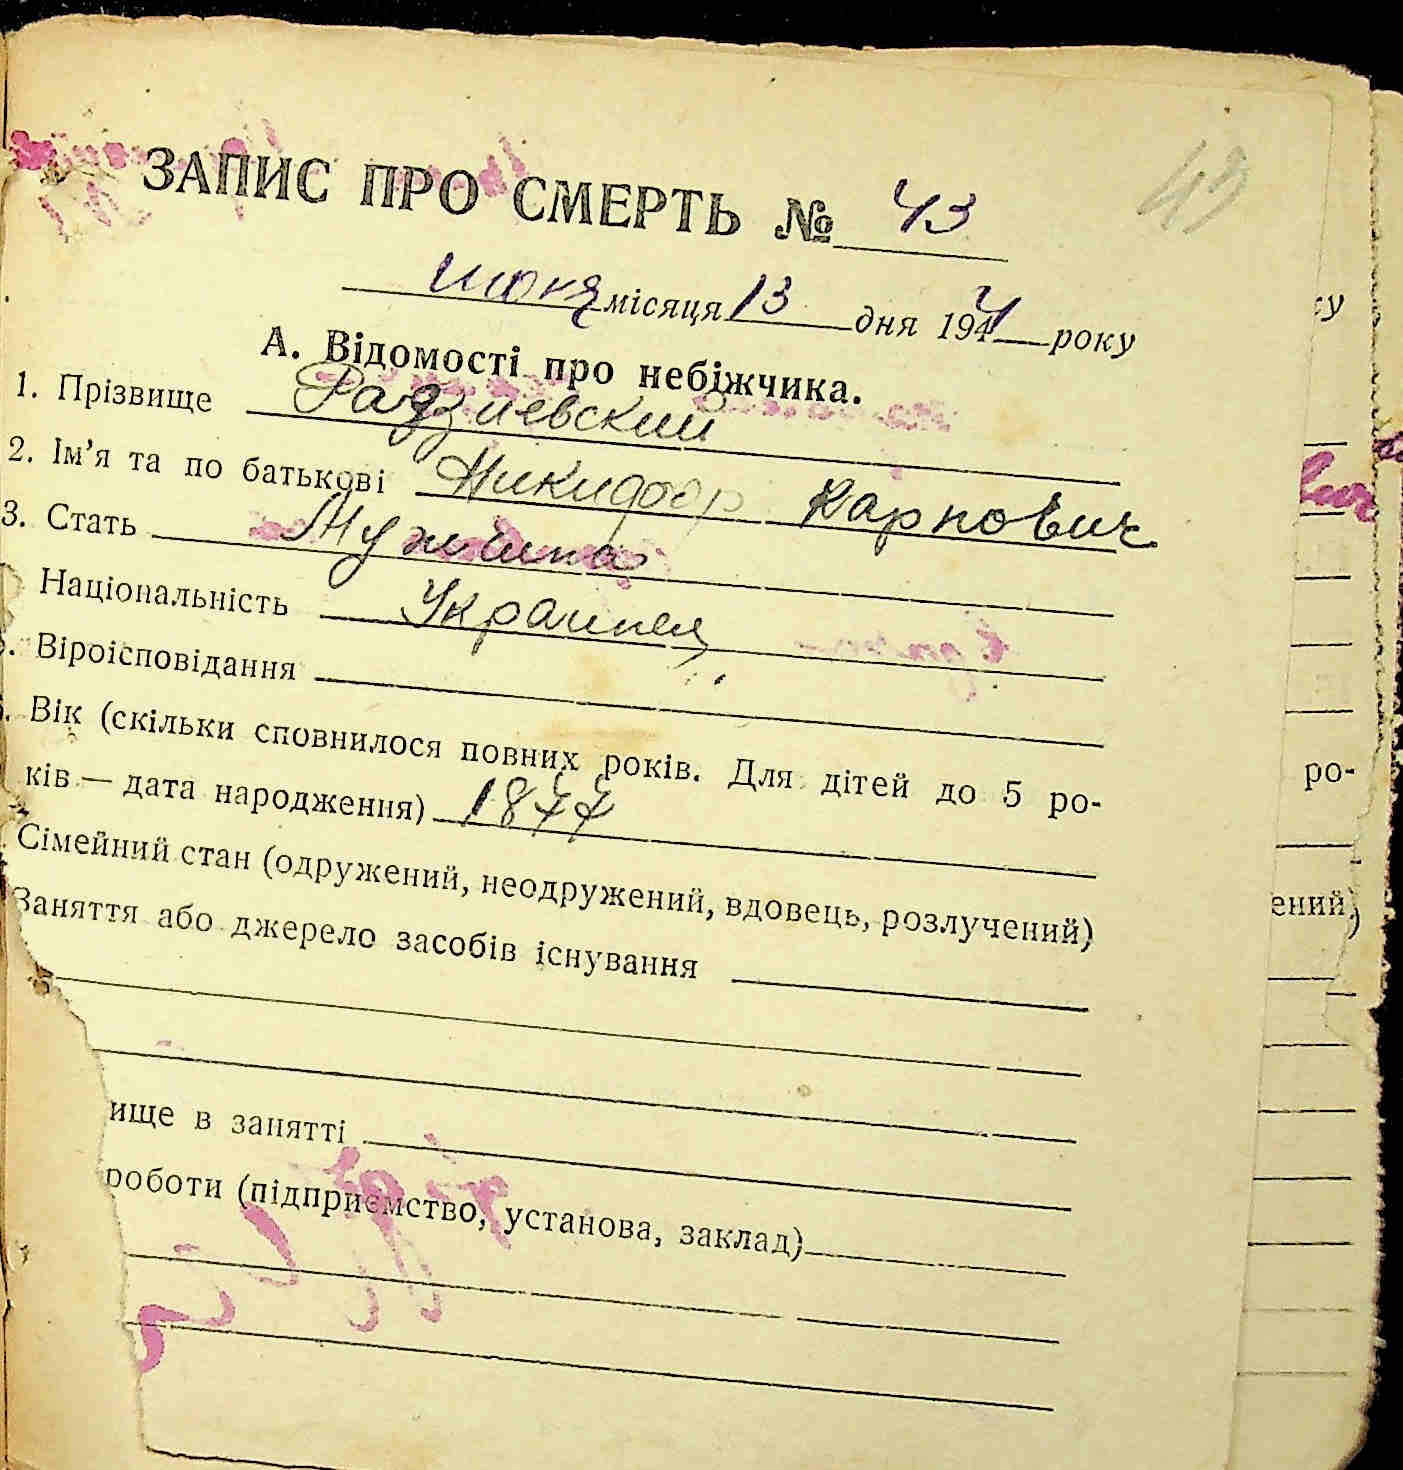 43
ЗАПИС ПРО СМЕРТЬ № 43
июня місяця 13 дня 1944 року
А. Відомості про небіжчика.
1. Прізвище Радзиевский
2. Ім’я та по батькові Никифор Карпович
3. Стать Мужчина
Національність Украинец
. Віроісповідання
. Вік (скільки сповнилося повних років. Для дітей до 5 ро-
ків — дата народження) 1877
Сімейний стан (одружений, неодружений, вдовець, розлучений)
Заняття або джерело засобів існування
ище в занятті
роботи (підприємство, установа, заклад)
ку
вич
ро-
ений,